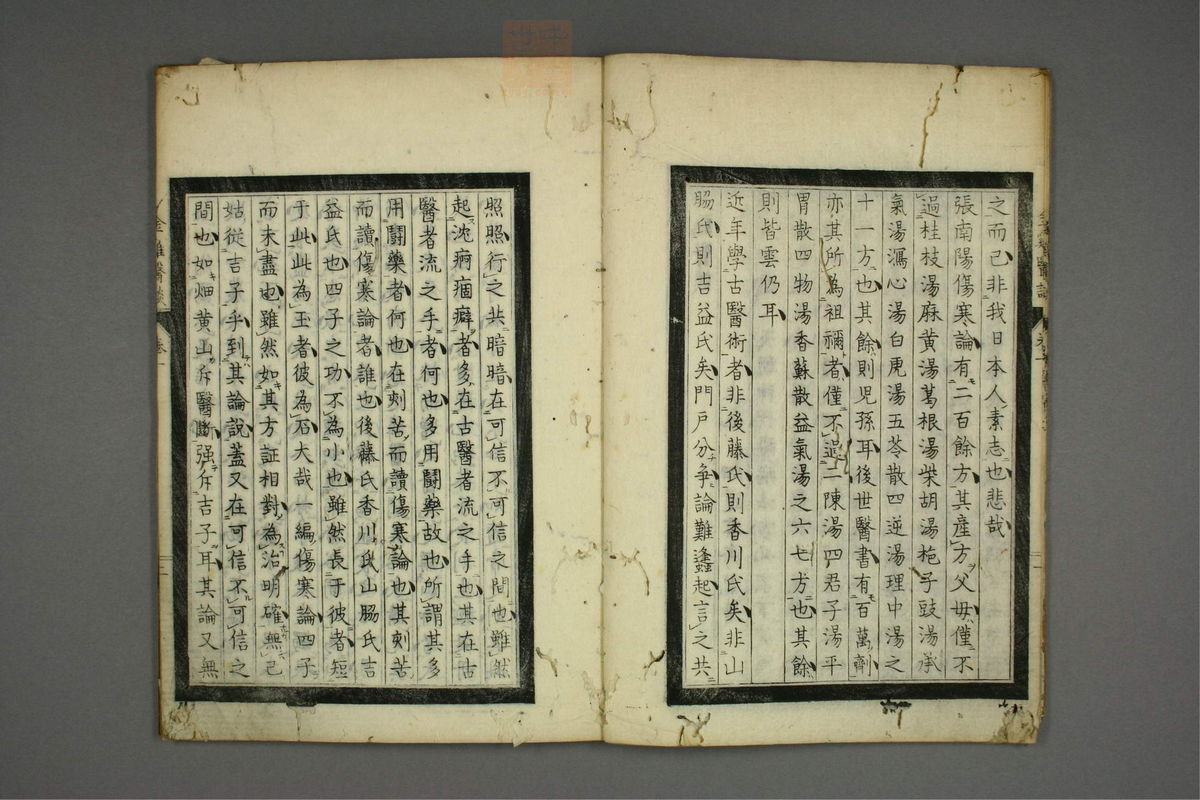 之而已非我日本人素志也悲哉
張南陽傷寒論有二百餘方其產方父毋僅不
過桂枝湯麻黄湯葛根湯柴胡湯梔子豉湯承
氣湯瀉心湯白虎湯五苓散四逆湯理中湯之
十一方也其餘則児孫耳後世醫書有百萬劑
亦其所為祖禰者僅不過二陳湯四君子湯平
胃散四物湯香蘇散益氣湯之六七方也其餘
則皆雲仍耳
近年學古醫術者非後藤氏則香川氏矣非山
脇氏則吉益氏矣門戸分争論難蠭起言之共
照照行之共暗暗在可信不可信之間也雖然
起沈痾痼癖者多在古醫者流之手也其在古
醫者流之手者何也多用鬪藥故也所謂其多
用鬪藥者何也在刻苦而讀傷寒論也其刻苦
而讀傷寒論者誰也後藤氏香川氏山脇氏吉
益氏也四子之功不為小也雖然長于彼者短
于此此為玉者彼為石大哉一編傷寒論四子
而未盡也雖然如其方証相對為治明確無己
姑從吉子乎到其論說蓋又在可信不可信之
間也如畑黄山斥醫斷强斥吉子耳其論又無